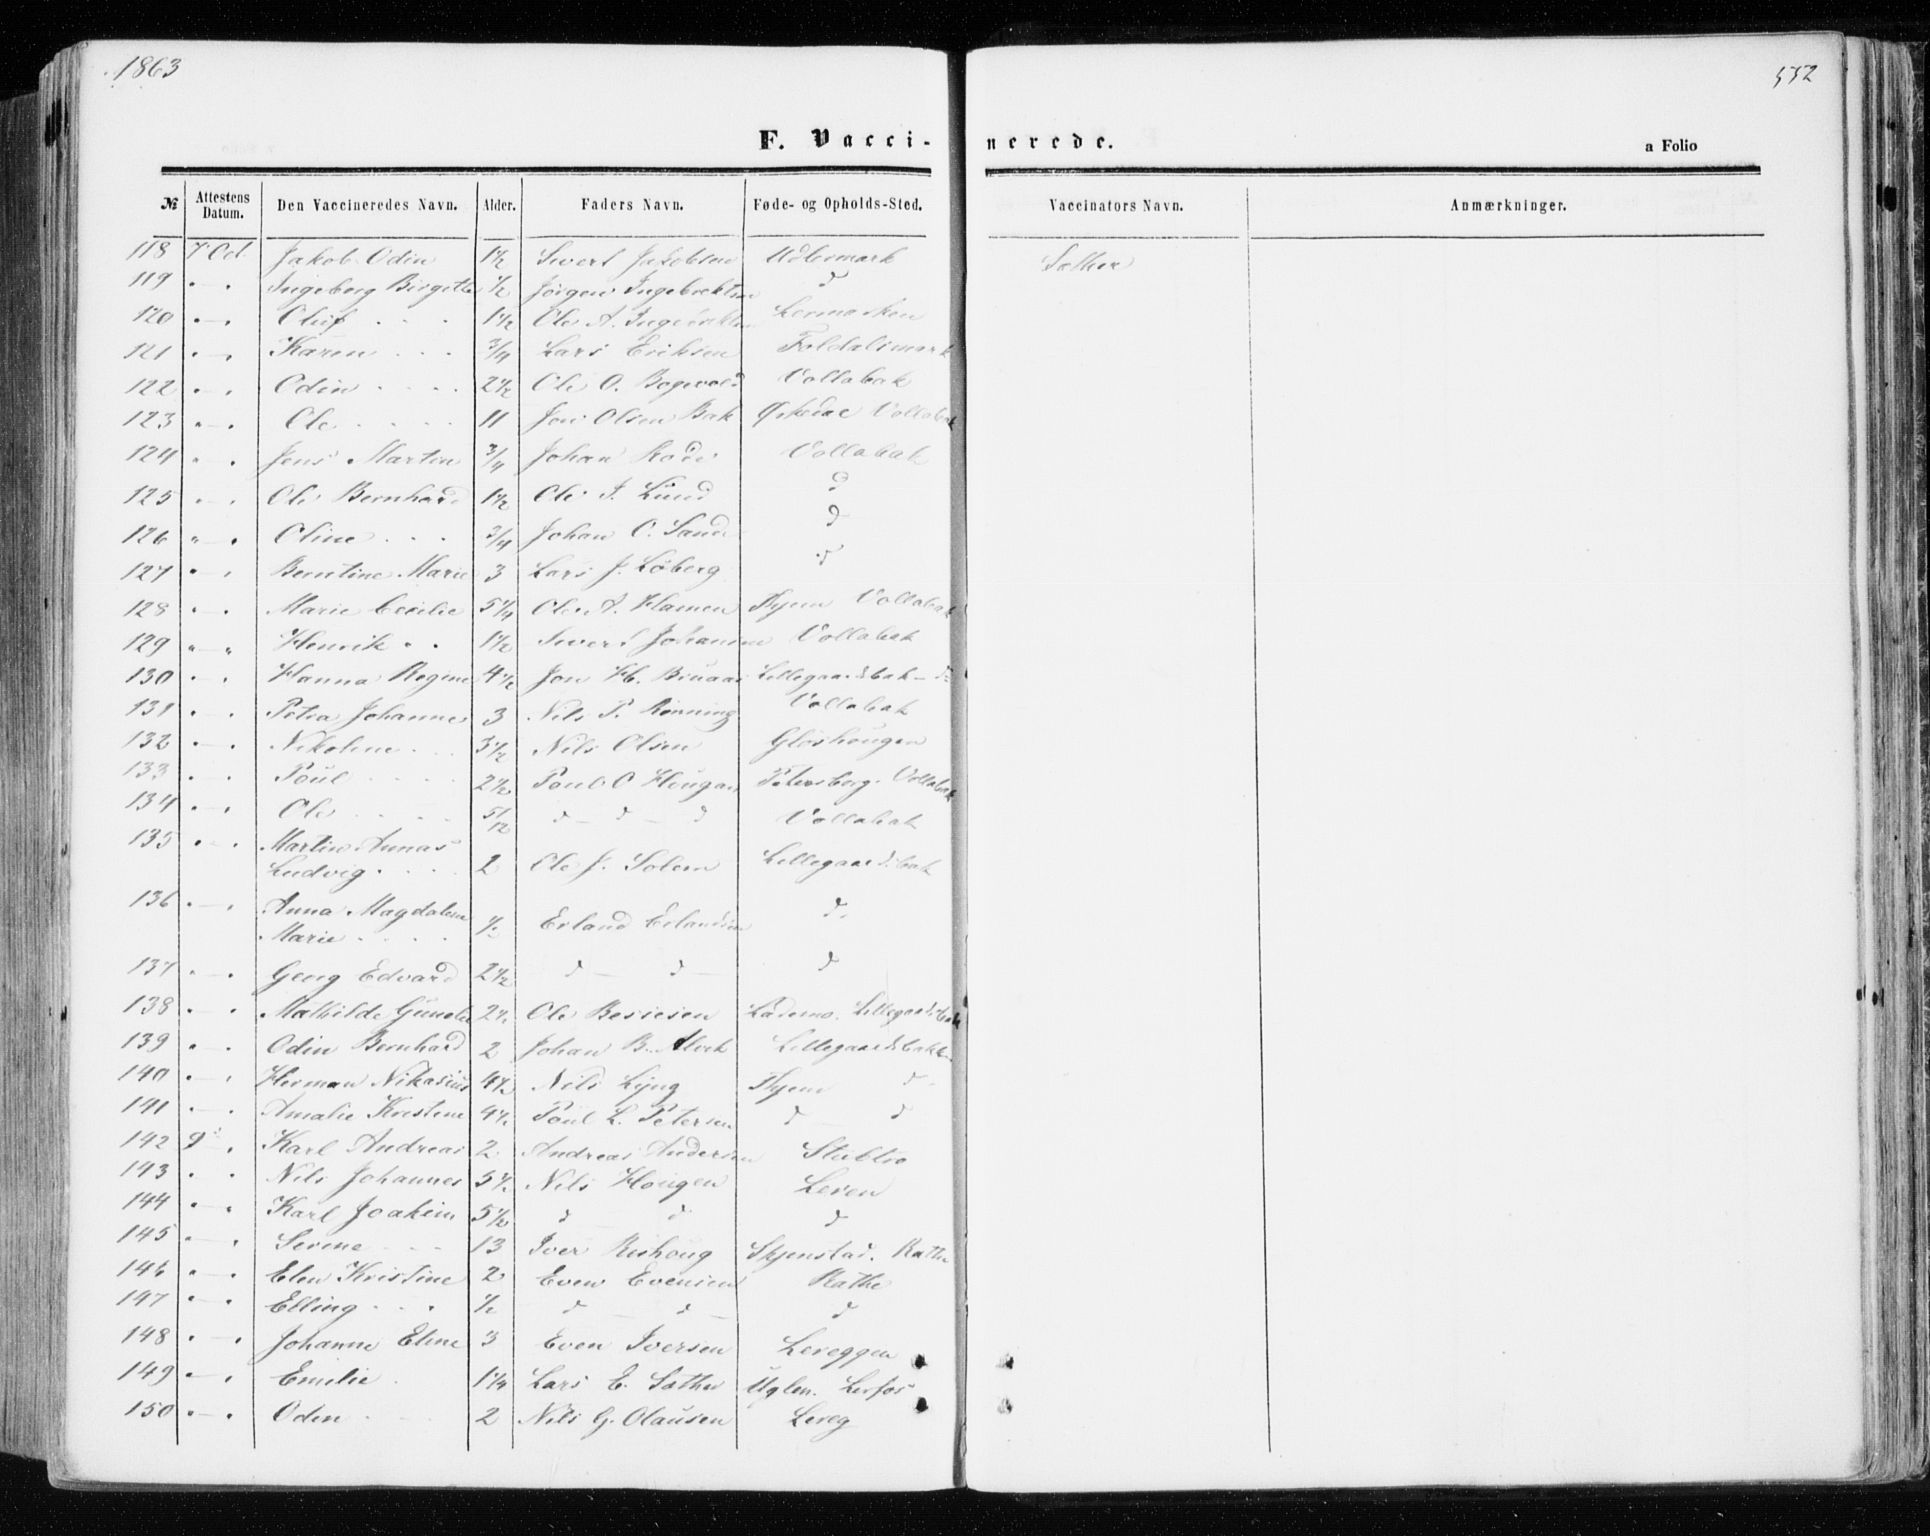 1863
552
F. Vacci-nerede.
a Folio
№ Attestens Datum. Den Vaccineredes Navn. Alder. Faders Navn. Føde- og Opholds-Sted. Vaccinators Navn. Anmærkninger.
118 7 Oct Jakob Odin 1 1/2 Sivert Jakobsen Udlermark Sæther
119 " — " Ingeborg Birgitte 1/2 Jørgen Ingebrektsen d
120 " — " Oluf 1 1/2 Ole A. Ingebrektsen
121 " — " Karen 3/4 Lars Eriksen
122 " — " Odin 2 1/2 Ole O. Bogevold Vollabak
123 " — " Ole 11 Jon Olsen Bak Ørkedal Vollabak
124 " — " Jens Martin 3/4 Johan Rode Vollabak
125 " — " Ole Bernhard 1 1/2 Ole J. Lund d
126 " — " Oline 3/4 Johan O. Sand d
127 " — " Berntine Marie 3 Lars J. Løberg d
128 " — " Marie Cecilie 5 1/4 Ole A. Hamen Thjem Vollabak
129 " — " Henrik 1 1/2 Sivert Johansen Vollabak
130 " — " Hanna Regine 4 1/2 Jon H. Bruaas Lillegaardsbak — d
131 " — " Petra Johanne 3 Nils P. Rønning Vollabak
132 " — " Nikoline 3 1/2 Nils Olsen Gløshougen
133 " — " Poul 2 1/2 Poul O Hougan Petersborg. Vollabak
134 " — " Ole 5/12 d — d — d Vollabak
135 " — " Martin Annas
Ludvig 2 Ole J. Solem Lillegaardsbak
136 " — " Anna Magdalena
Marie 1/2 Erland Erlandsen d
137 " — " Georg Edvard 2 1/2 d — d — d
138 " — " Mathilde Gunelie 2 1/2 Ole Besiesen Lademo. Lillegaardsbak
139 " — " Odin Bernhard 2 Johan B. Alvek Lillegaardsbakken
140 " — " Herman Nikasius 4 1/2 Nils Lyng Thjem d
141 " — " Amalie Kristine 4 1/2 Poul L. Petersen d — d
142 9 " Karl Andreas 2 Andreas Andersen Stubbo
143 " " Nils Johannes 5 1/2 Nils Hougen Leren
144 " — " Karl Joakim 5 1/2 d — d d
145 " — " Serine 13 Iver Reshoug Skjenstad. Rathe
146 " — " Elen Kristine 2 Even Evensen Rathe
147 " — " Elling 1/2 d — d — d
148 " — " Johanne Eline 3 Even Iversen Lereggen
149 " — " Emilie 1 1/4 Lars E. Sæther Uglen. Lerfos
150 " — " Odin 2 Nils G. Olausen Lereg